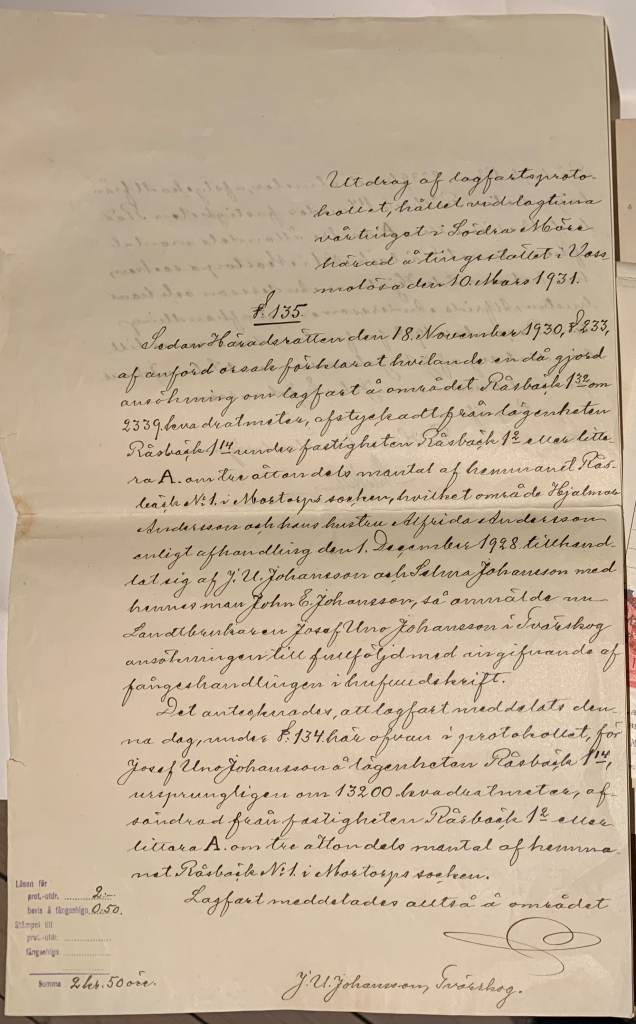 Utdrag af lagfartsproto-
kollet, hållet vid lagtima
vårtinget i Södra Möre
härad å tingsstället i Voss-
molösa den 10. Mars 1931.
§. 135.
Sedan Häradsrätten den 18. November 1930, §. 233,
af anförd orsak förklarat hvilande en då gjord
ansökning om lagfart å området Råsbäck 1 32 om
2339 kvadratmeter, afstyckadt från lägenheten
Råsbäck 1 14 under fastigheten Råsbäck 1 2 eller litte-
ra A. om tre åttondels mantal af hemmanet Rås-
bäck No 1. i Mortorps socken, hvilket område Hjalmar
Andersson och hans hustru Alfrida Andersson
enligt afhandling den 1. December 1928 tillhand-
lat sig af J. U. Johansson och Selma Johansson med
hennes man John E. Johansson, så anmälde nu
Landtbrukaren Josef Uno Johansson i Tvärskog
ansökningen till fullföljd med ingifvande af
fångeshandlingen i hufvudskrift.
Det antecknades, att lagfart meddelats den-
na dag, under §. 134. här ofvan i protokollet, för
Josef Uno Johansson å lägenheten Råsbäck 1 14,
ursprungligen om 13200 kvadratmeter, af-
söndrad från fastigheten Råsbäck 1 2 eller
littera A. om tre åttondels mantal af hemma-
net Råsbäck No 1. i Mortorps socken.
Lagfart meddelades alltså å området
Lösen för
prot.-utdr. 2:-
bevis å fångeshlgn. 0.50.
Stämpel till
prot.-utdr.
fångeshlgn
Summa 2 kr. 50 öre.
J. U. Johansson, Tvärskog.